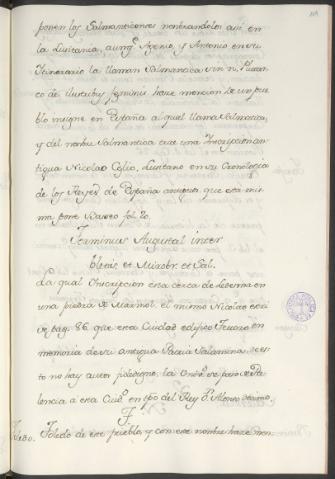 ponen los Salmanticenses nombrandolos asi en
la Lusitania, aunq. Agenio, y Antonio en su
Itinerario la llaman Salmantica sin n. Plutar
co de claribus feminis hace mencion de un pue
blo insigne en España al qual llama Salmatica,
y del nombre Salmantica trae una Inscripcion an
tigua Nicolao Coelio, Lusitano en su Cronologia
de los Reyes de España aunque esta mis
ma pone Vaseo fol. 20.
Terminus Augustal inter
blenic et Mirobr. et Sal.
La qual Inscripcion esta cerca de Ledesma en
una piedra de Marmol. el mismo Nicolao escri
ve pag. 86 que esta Ciudad edifico Teucro en
memoria de su antigua Patria Salamina. de es
to no hay autor fidedigno. la
lencia a esta Ciud. en tpo del Rey D. Alonso
T.
Toledo. Toledo de este pueblo, y con este nombre hace men